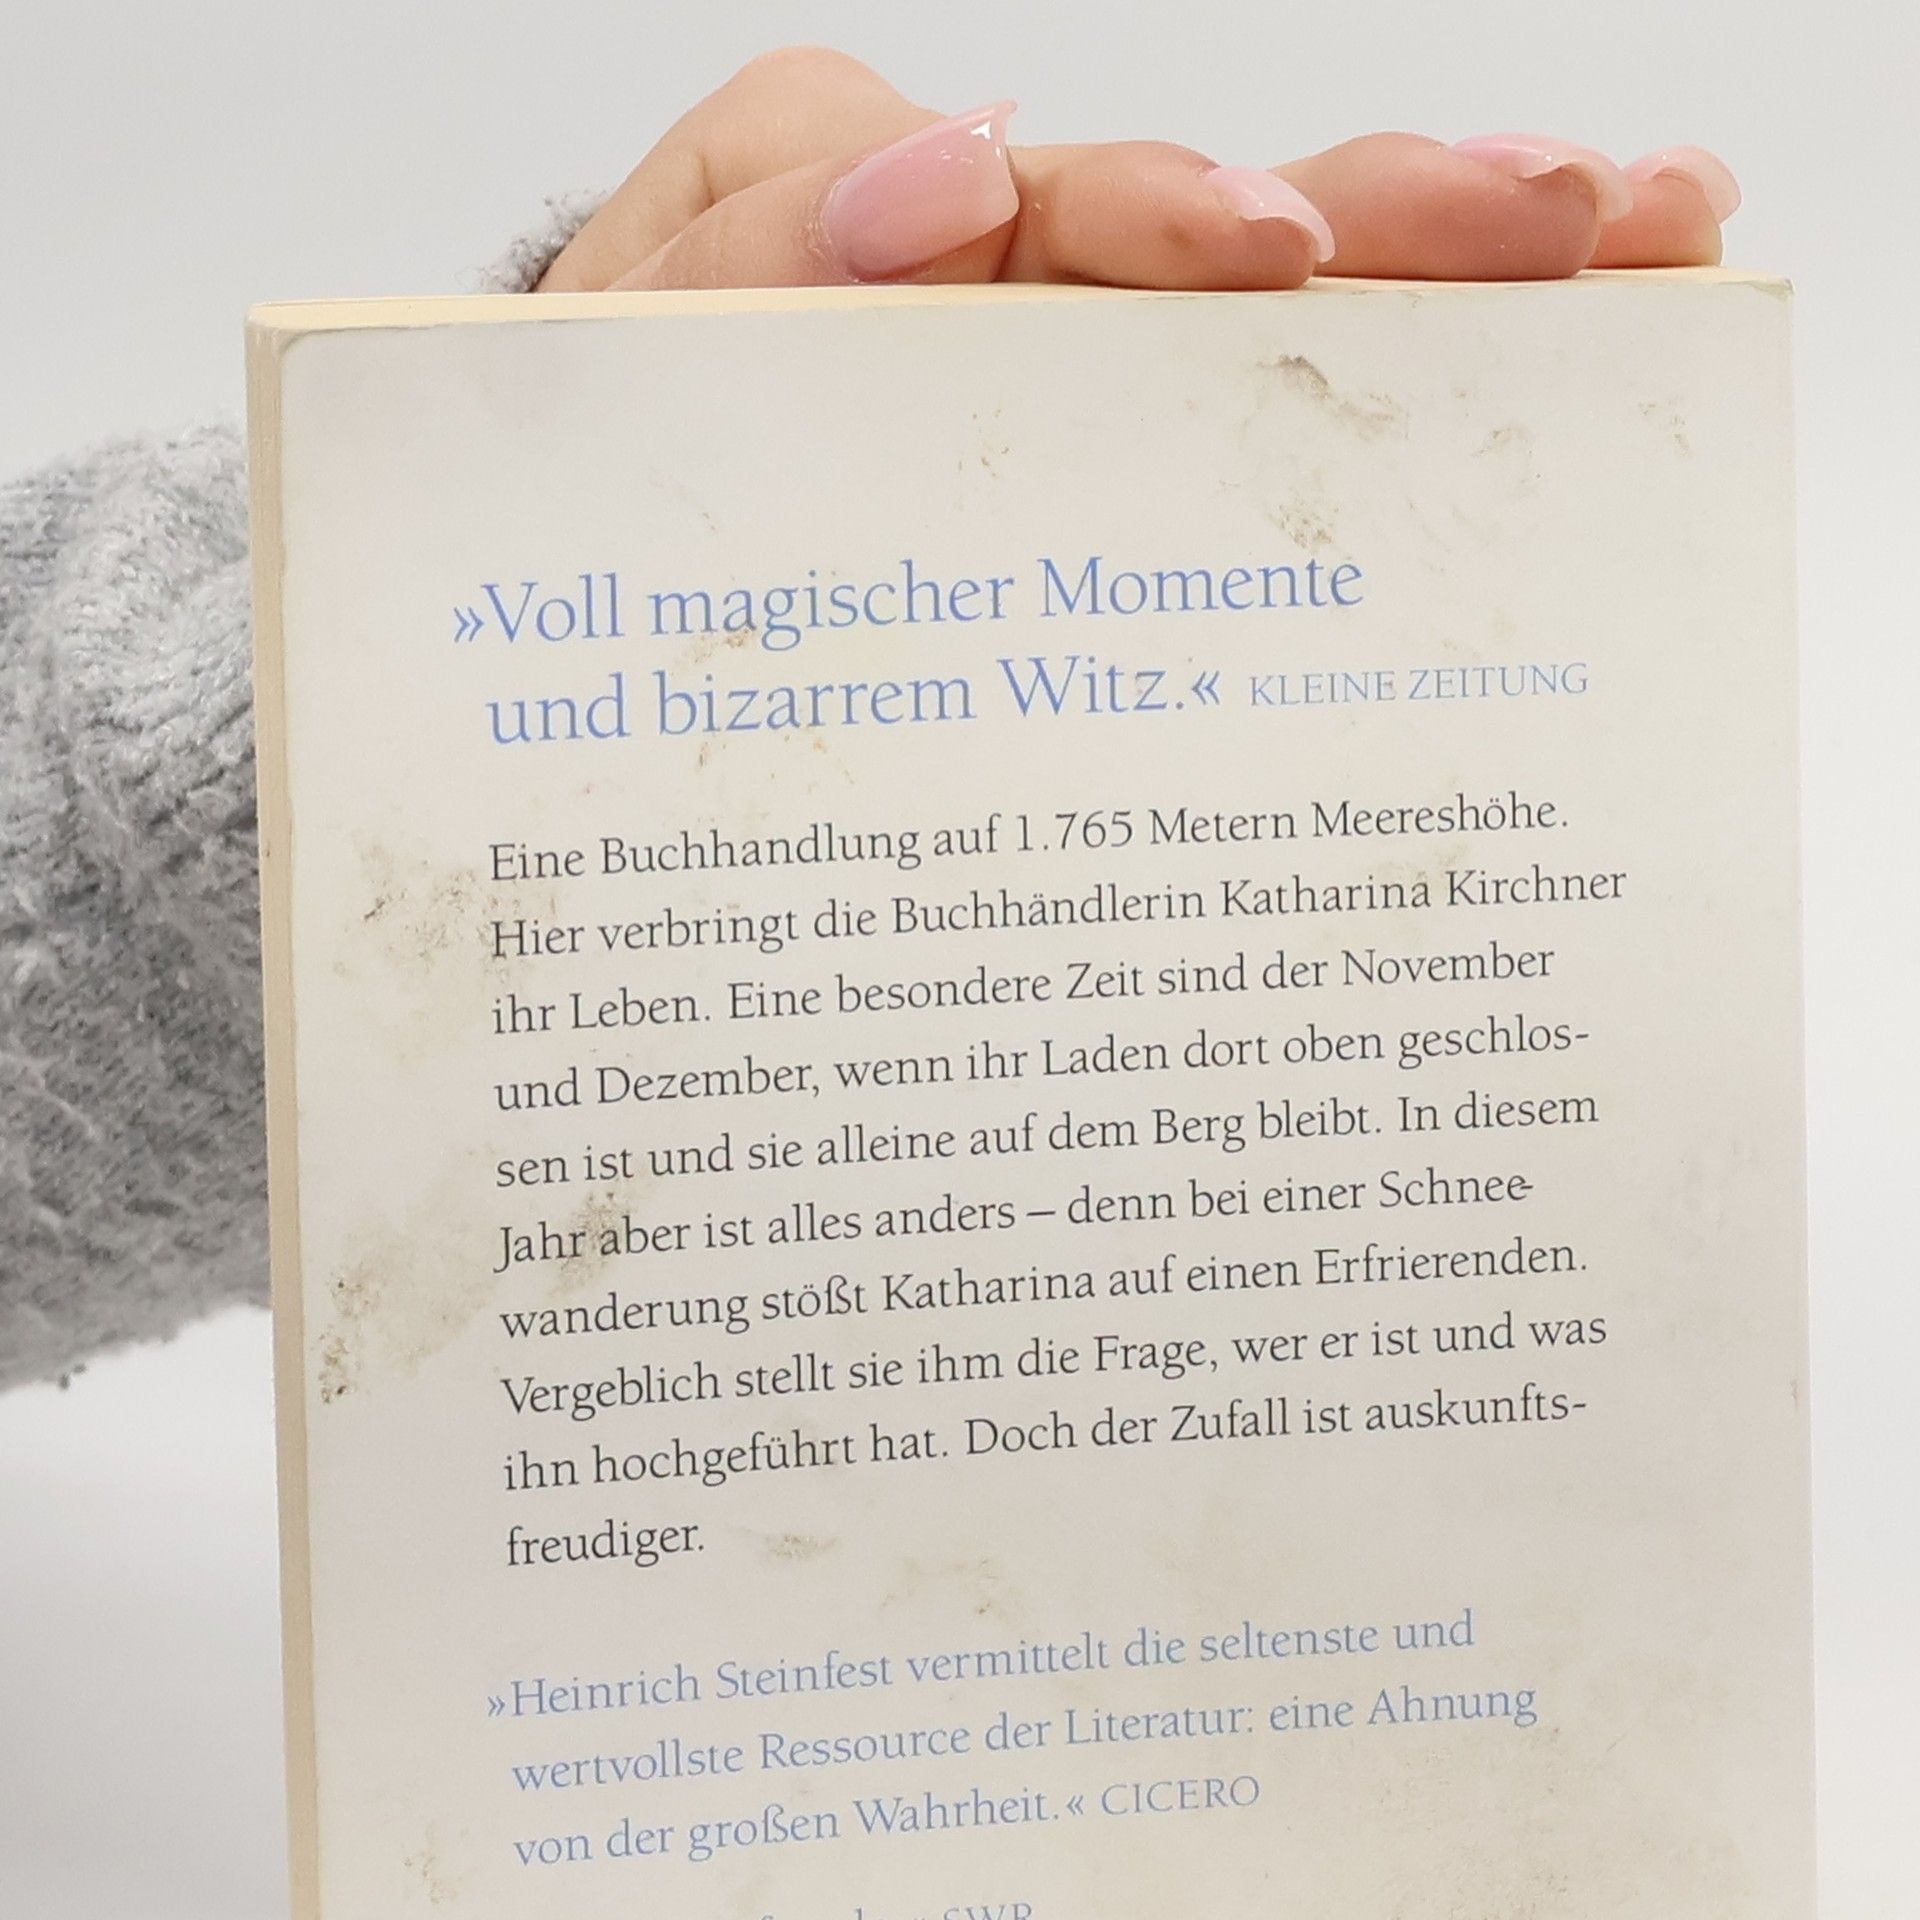 »Voll magischer Momente
und bizarrem Witz.« KLEINE ZEITUNG
Eine Buchhandlung auf 1.765 Metern Meereshöhe.
Hier verbringt die Buchhändlerin Katharina Kirchner
ihr Leben. Eine besondere Zeit sind der November
und Dezember, wenn ihr Laden dort oben geschlos-
sen ist und sie alleine auf dem Berg bleibt. In diesem
Jahr aber ist alles anders – denn bei einer Schnee-
wanderung stößt Katharina auf einen Erfrierenden.
Vergeblich stellt sie ihm die Frage, wer er ist und was
ihn hochgeführt hat. Doch der Zufall ist auskunfts-
freudiger.
»Heinrich Steinfest vermittelt die seltenste und
wertvollste Ressource der Literatur: eine Ahnung
von der großen Wahrheit.« CICERO
SWR